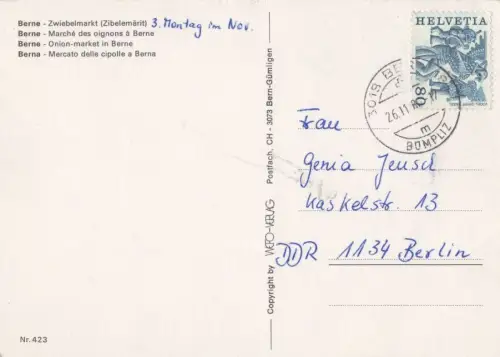 Berne - Zwiebelmarkt (Zibelemärit) 3. Montag im Nov.
Berne - Marché des oignons à Berne
Berne - Onion-market in Berne
Berne - Mercato delle cipolle a Berna
HELVETIA
80
3018 BE
26.11
m
BÜMPLIZ
Frau
Genia Jeusch
Kaskelstr. 13
DDR 1134 Berlin
Copyright by WERO-VERLAG Postfach, CH - 3073 Bern-Gümligen
Nr. 423